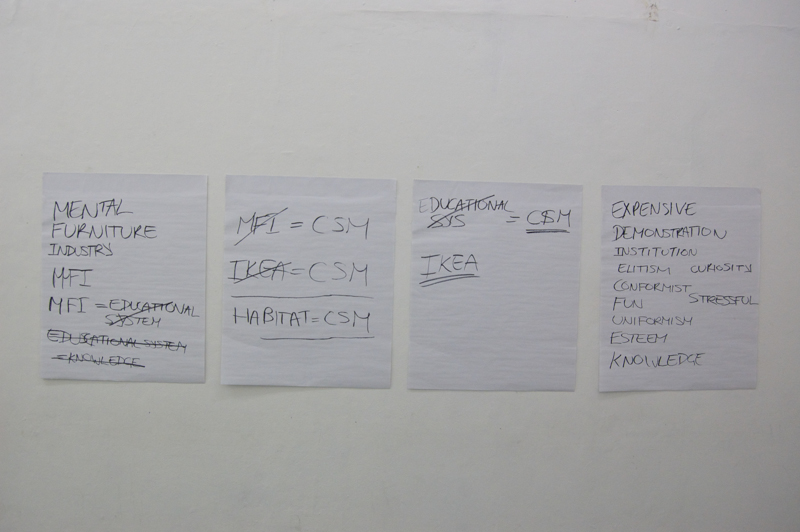 MENTAL
FURNITURE
INDUSTRY
MFI
MFI = EDUCATIONAL
SYSTEM
EDUCATIONAL SYSTEM
= KNOWLEDGE
MFI = CSM
IKEA = CSM
HABITAT = CSM
EDUCATIONAL
SYS = CSM
IKEA
EXPENSIVE
DEMONSTRATION
INSTITUTION
ELITISM CURIOSITY
CONFORMIST
FUN STRESSFUL
UNIFORMISM
ESTEEM
KNOWLEDGE